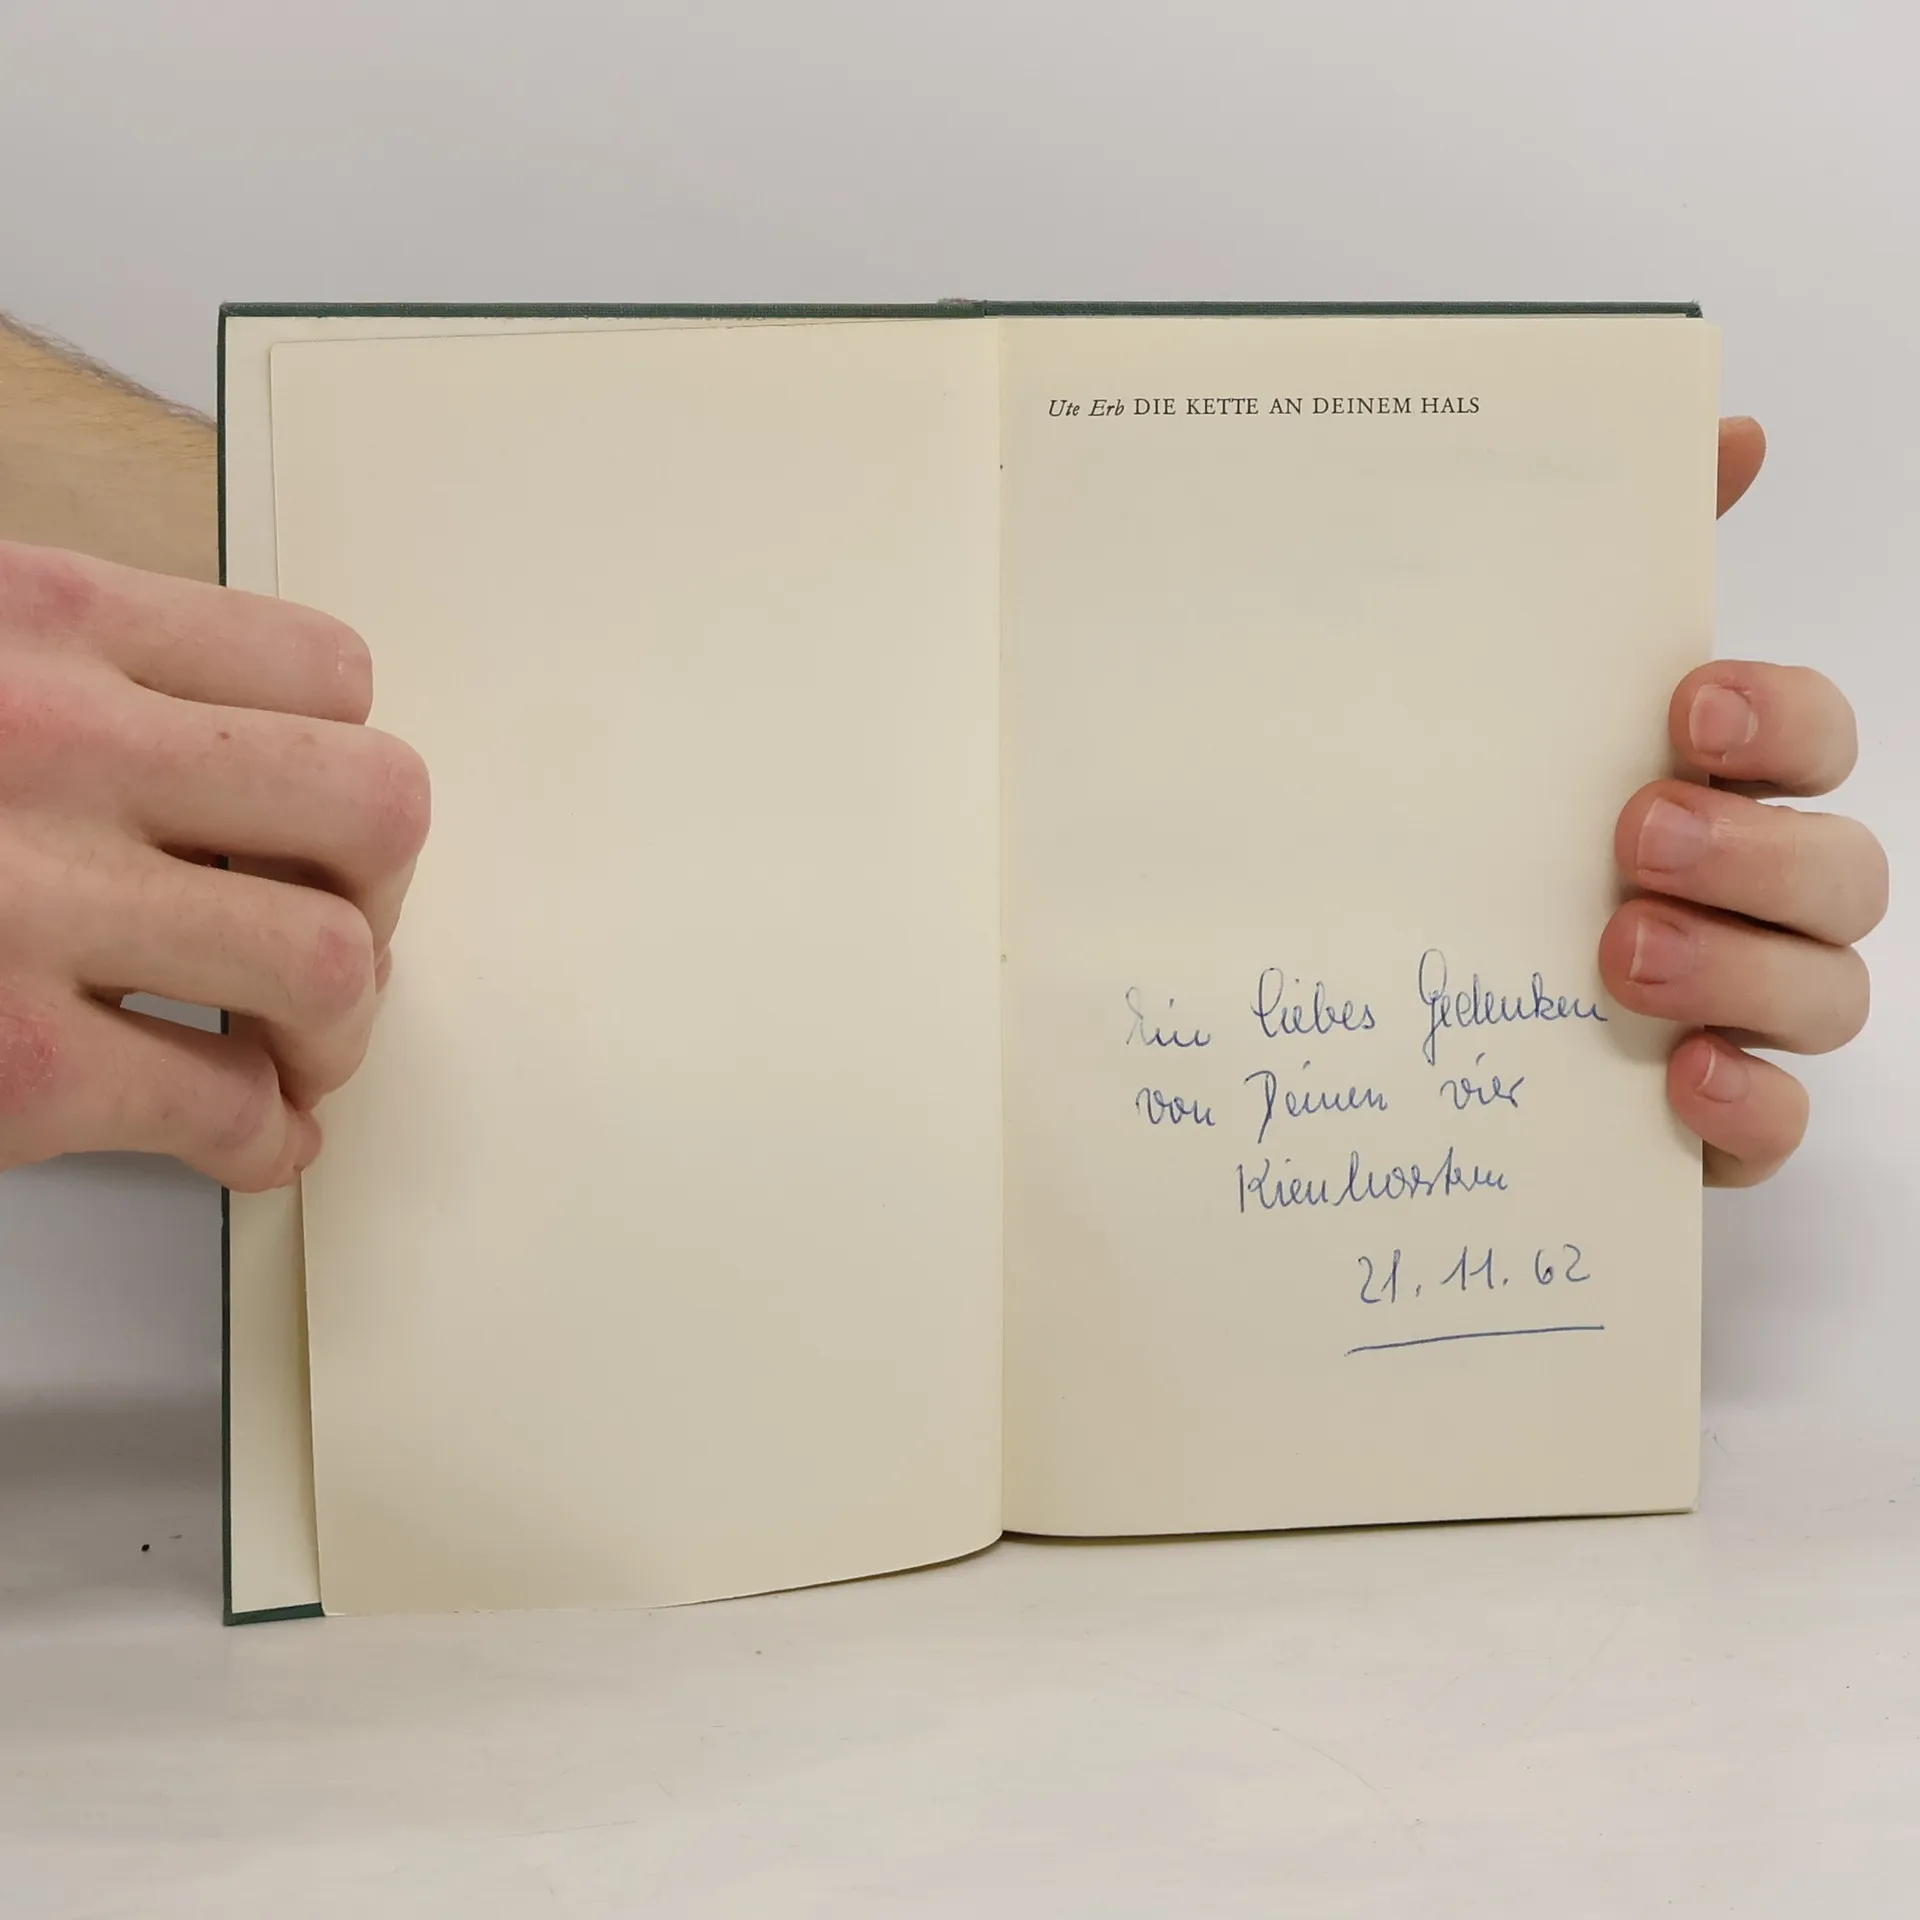 Ute Erb DIE KETTE AN DEINEM HALS
Ein liebes Gedenken
von Deinen vier
Kienhorsten
21. 11. 62